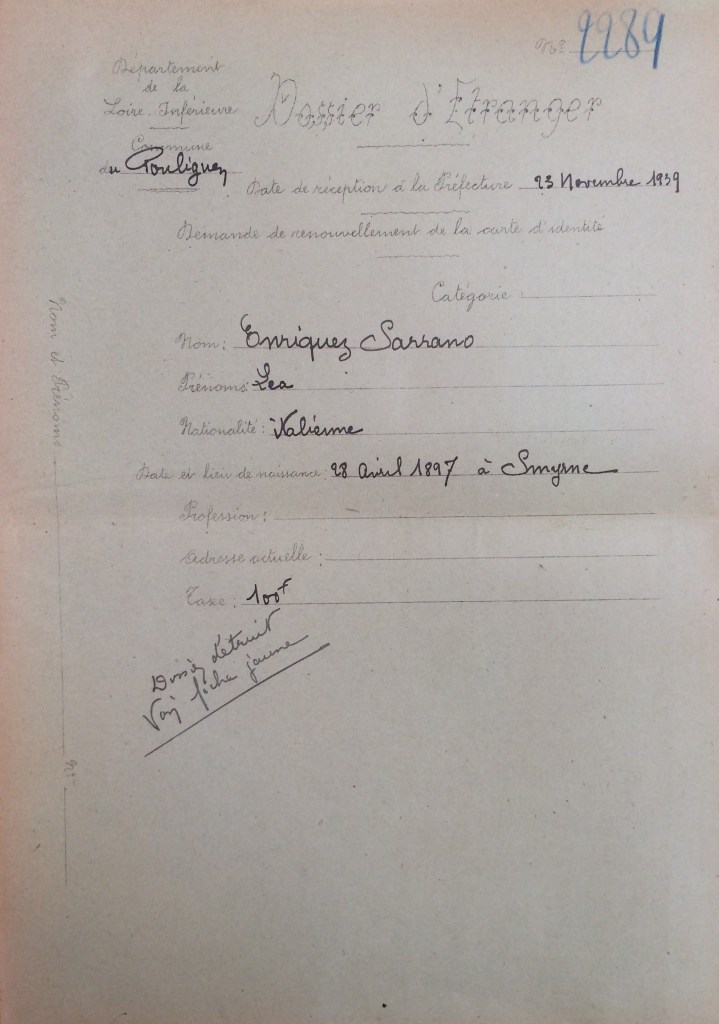 N° 2289
Département
de la
Loire-Inférieure
Commune
du Pouliguen
Dossier d'Etranger
Date de réception à la Préfecture 23 Novembre 1939
Demande de renouvellement de la carte d'identité
Catégorie
Nom: Enriquez Sarrano
Prénoms: Lea
Nationalité: italienne
Date et lieu de naissance: 28 avril 1897 à Smyrne
Profession:
Adresse actuelle:
Taxe: 100f
Dossier détruit
Voir fiche jaune
Nom et Prénoms
N°